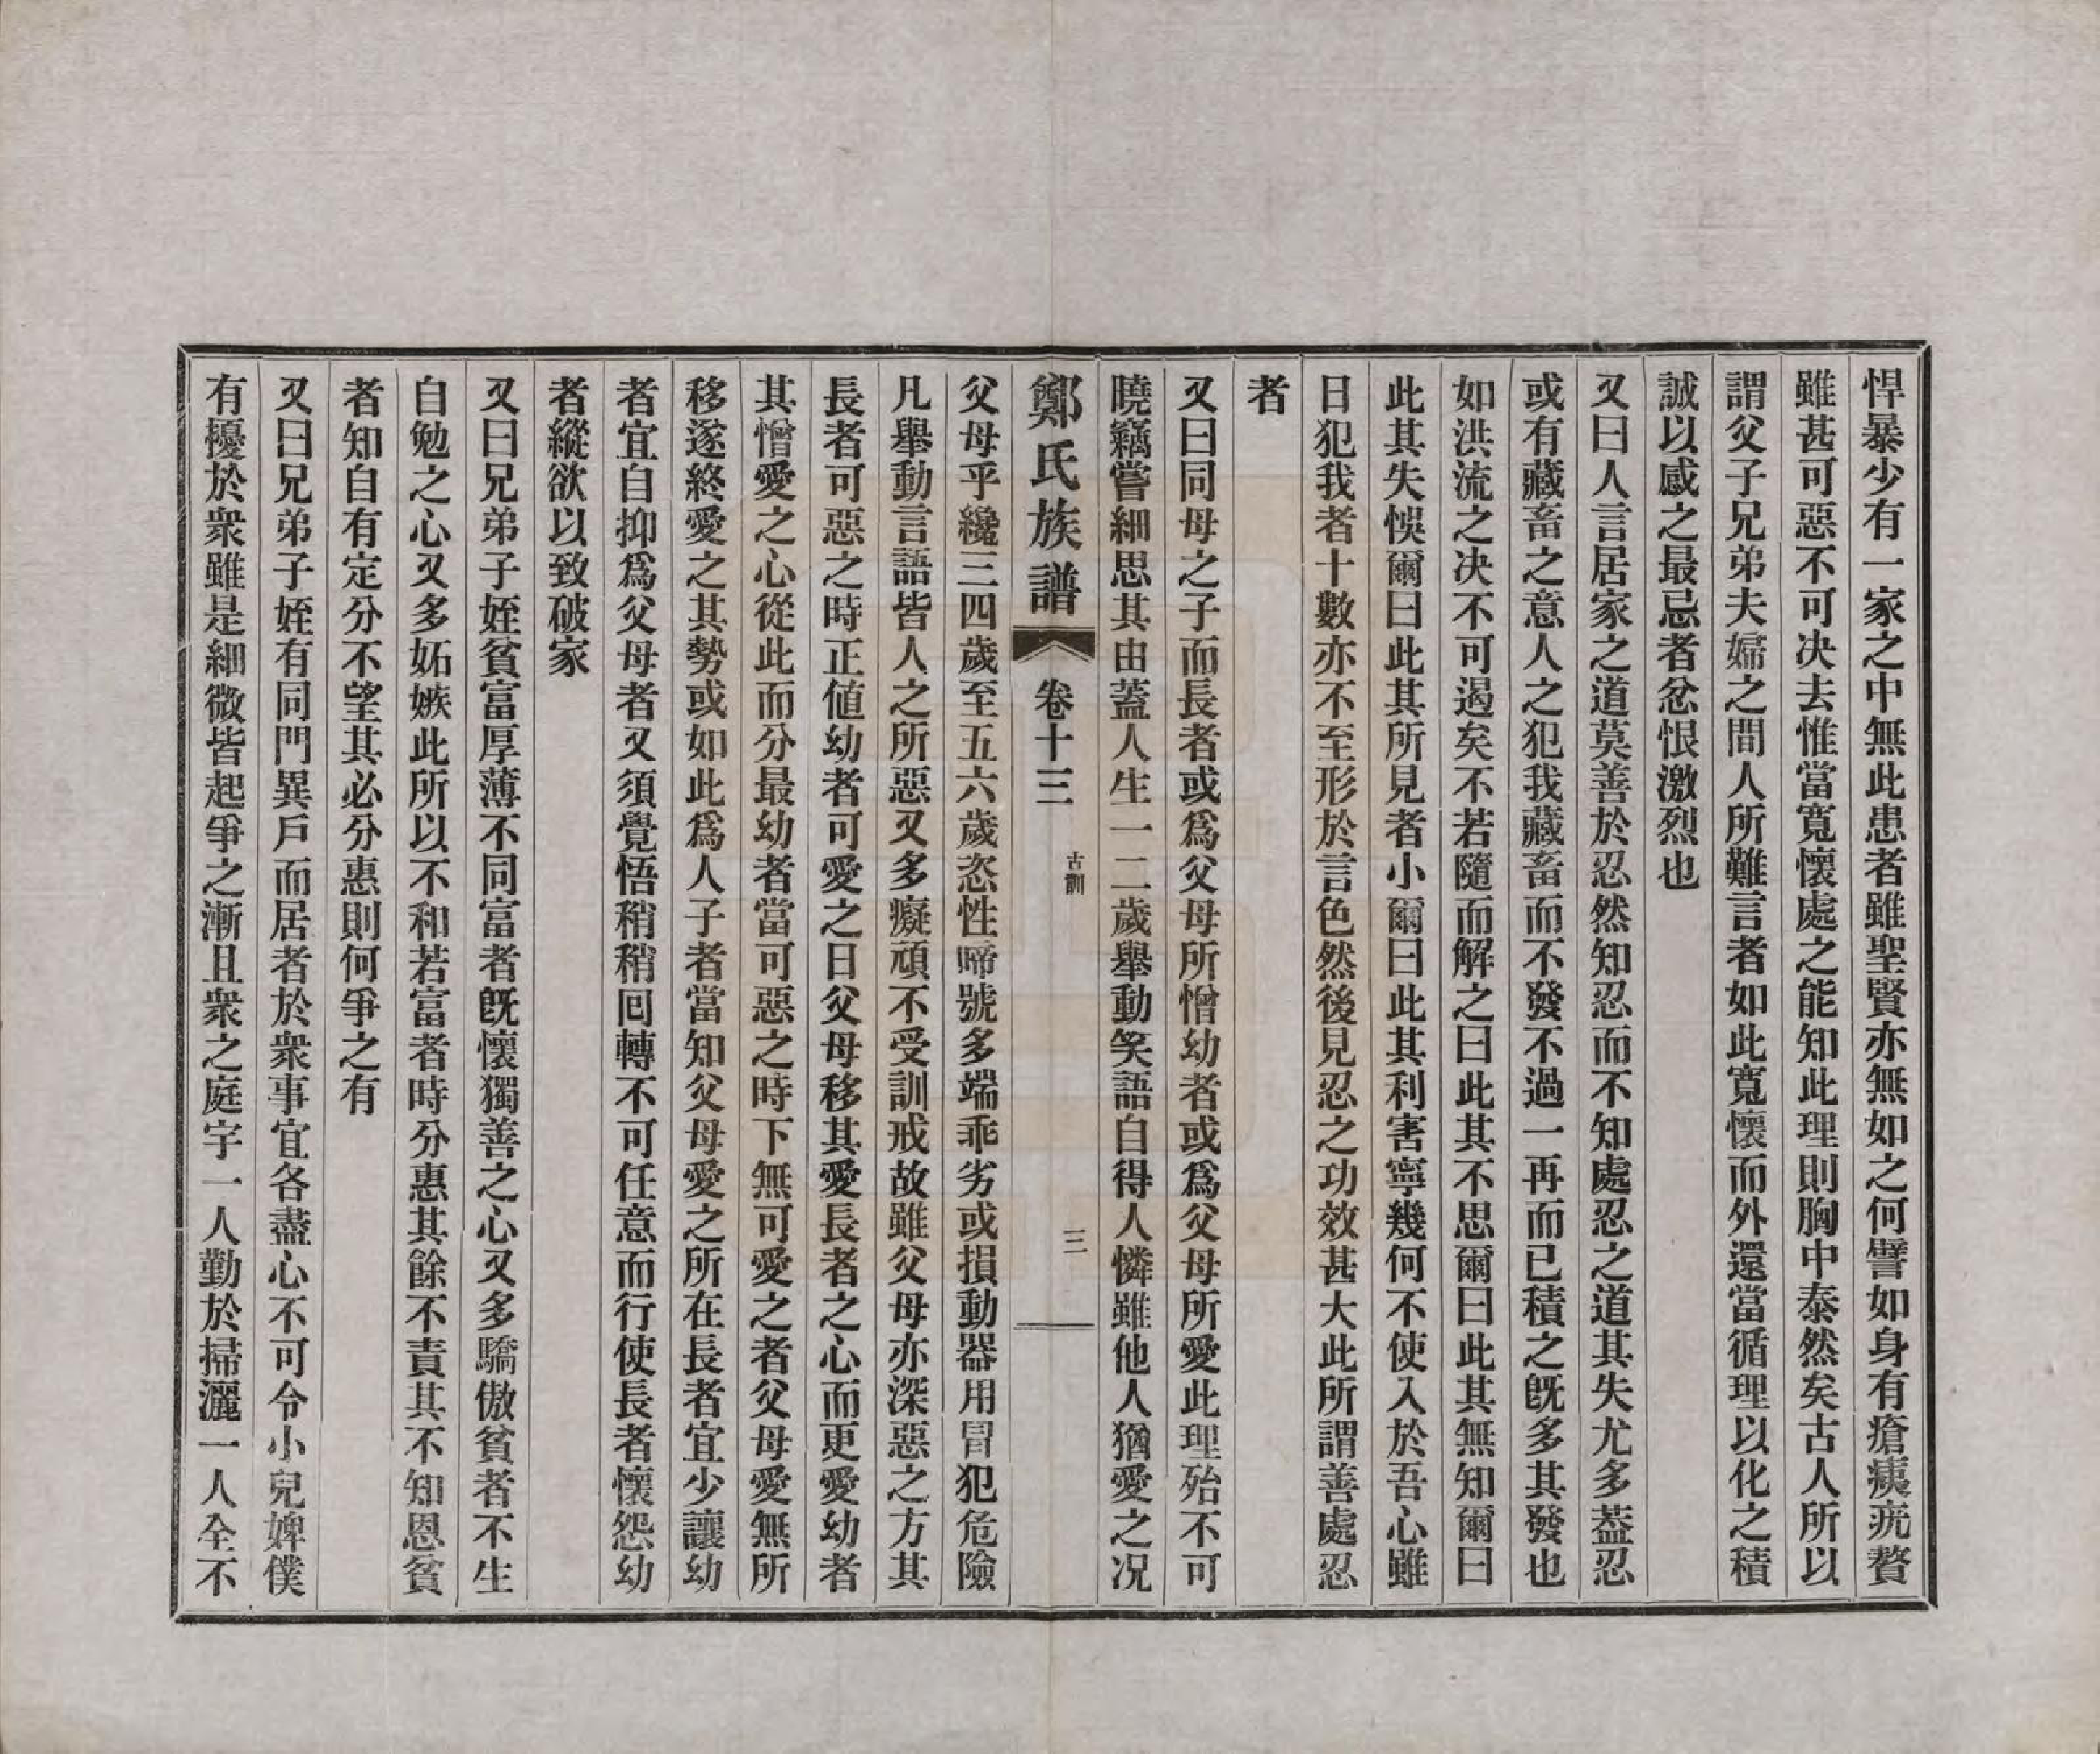 悍暴少有一家之中無此患者雖聖賢亦無如之何譬如身有瘡痍疣贅
雖甚可惡不可决去惟當寬懷處之能知此理則胸中泰然矣古人所以
謂父子兄弟夫婦之間人所難言者如此寬懷而外還當循理以化之積
誠以感之最忌者忿恨激烈也
又曰人言居家之道莫善於忍然知忍而不知處忍之道其失尤多葢忍
或有藏畜之意人之犯我藏畜而不發不過一再而已積之旣多其發也
如洪流之决不可遏矣不若隨而解之曰此其不思爾曰此其無知爾曰
此其失悞爾曰此其所見者小爾曰此其利害寧幾何不使入於吾心雖
日犯我者十數亦不至形於言色然後見忍之功效甚大此所謂善處忍
者
又曰同母之子而長者或爲父母所憎幼者或爲父母所愛此理殆不可
曉竊嘗細思其由蓋人生一二歲舉動笑語自得人憐雖他人猶愛之况
鄭氏族譜 卷十三 古訓 三
父母乎纔三四歲至五六歲恣性啼號多端乖劣或損動器用冒犯危險
凡舉動言語皆人之所惡又多癡頑不受訓戒故雖父母亦深惡之方其
長者可惡之時正値幼者可愛之日父母移其愛長者之心而更愛幼者
其憎愛之心從此而分最幼者當可惡之時下無可愛之者父母愛無所
移遂終愛之其勢或如此爲人子者當知父母愛之所在長者宜少讓幼
者宜自抑爲父母者又須覺悟稍稍囘轉不可任意而行使長者懷怨幼
者縱欲以致破家
又曰兄弟子姪貧富厚薄不同富者旣懷獨善之心又多驕傲貧者不生
自勉之心又多妬嫉此所以不和若富者時分惠其餘不責其不知恩貧
者知自有定分不望其必分惠則何爭之有
又曰兄弟子姪有同門異戶而居者於衆事宜各盡心不可令小兒婢僕
有擾於衆雖是細微皆起爭之漸且衆之庭宇一人勤於掃灑一人全不